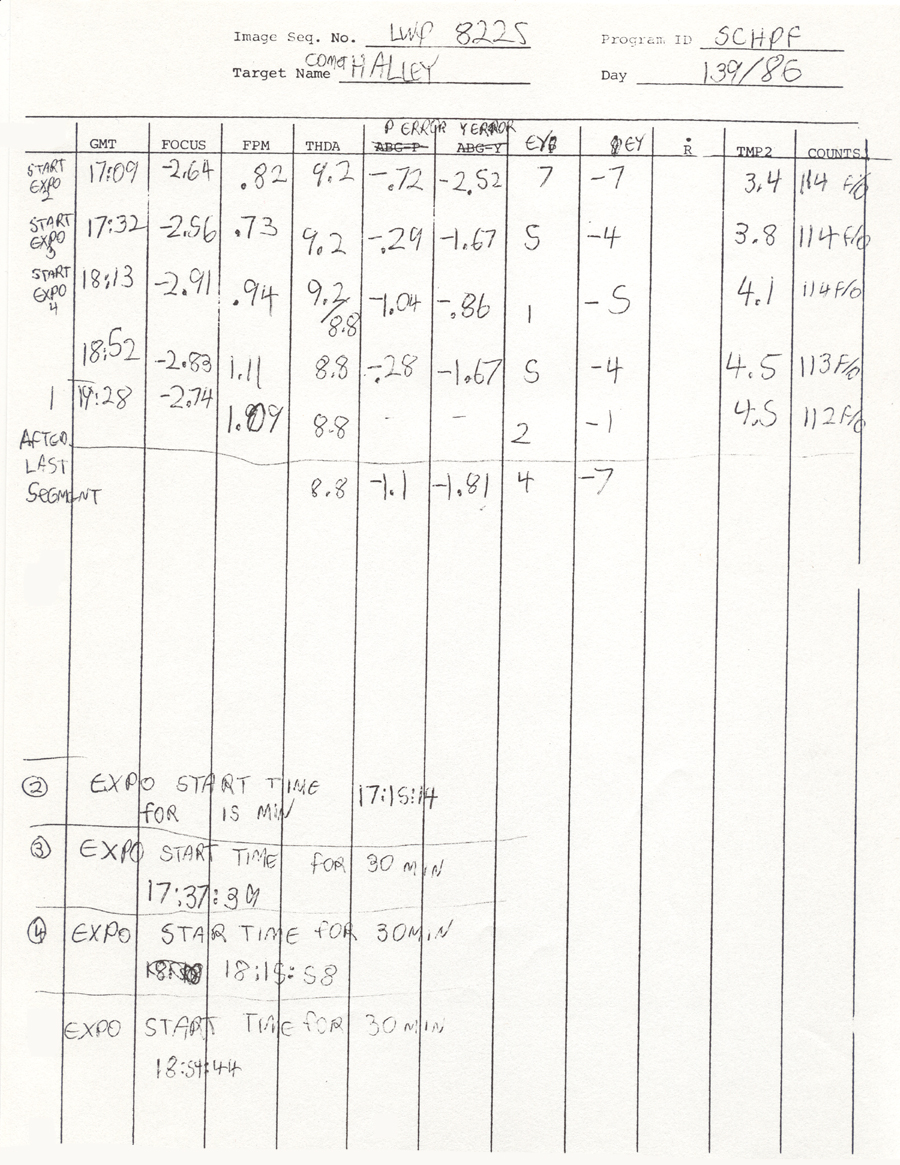 Image Seq. No. LWP 8225 Program ID SCHPF
Target Name COMET HALLEY Day 139/86
P ERROR Y ERROR
GMT FOCUS FPM THDA ABG-P ABG-Y EY EY Ṙ TMP2 COUNTS
START EXPO 2 17:09 -2.64 .82 9.2 -.72 -2.52 7 -7 3.4 114 F/0
START EXPO 3 17:32 -2.56 .73 9.2 -.29 -1.67 5 -4 3.8 114 F/0
START EXPO 4 18:13 -2.91 .94 9.2/8.8 -1.04 -.86 1 -5 4.1 114 F/0
18:52 -2.83 1.11 8.8 -.28 -1.67 5 -4 4.5 113 F/0
1 19:28 -2.74 1.09 8.8 - - 2 -1 4.5 112 F/0
AFTER
LAST
SEGMENT 8.8 -1.1 -1.81 4 -7
② EXPO START TIME 17:15:14
FOR 15 MIN
③ EXPO START TIME FOR 30 MIN
17:37:
④ EXPO STAR TIME FOR 30MIN
18:15:58
EXPO START TIME FOR 30 MIN
18:54:44